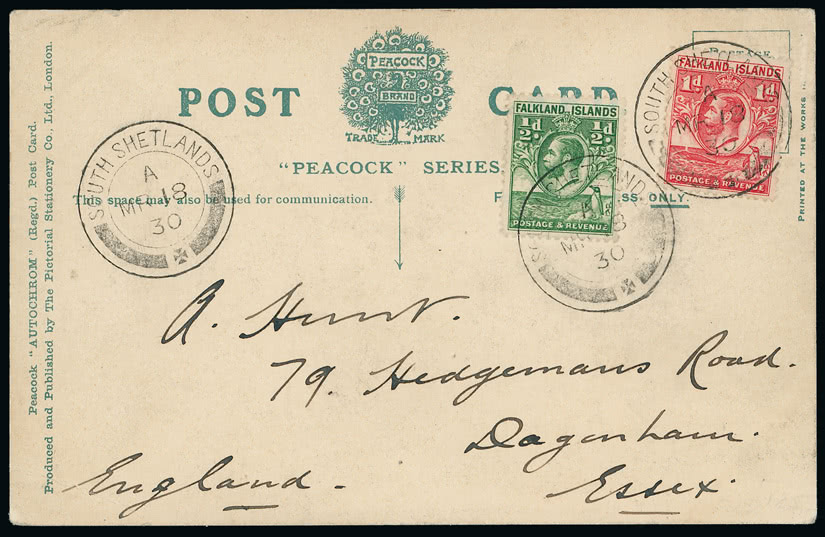 Peacock "AUTOCHROM" (Regd.) Post Card.
Produced and Published by The Pictorial Stationery Co., Ltd., London.
POST CARD
PEACOCK
BRAND
TRADE MARK
"PEACOCK" SERIES.
This space may also be used for communication.
ONLY.
POSTAGE
PRINTED AT THE WORKS
SOUTH SHETLANDS
A
18
30
FALKLAND ISLANDS
½d ½d
POSTAGE & REVENUE
FALKLAND ISLANDS
1d 1d
POSTAGE & REVENUE
SOUTH SHETLANDS
A
30
18
30
A. Hunt.
79. Hedgemans Road.
Dagenham.
Essex.
England.